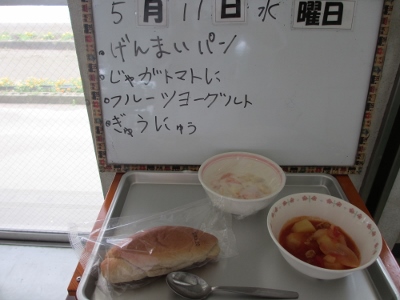 5月11日水曜日
・げんまいパン
・じゃがトマトに
・フルーツヨーグルト
・ぎゅうにゅう